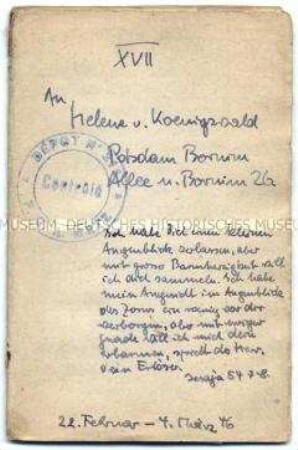 XVII
An
Helene v. Koenigswald
Potsdam Bornim
Allee n. Bornim 26
DÉPOT N°
Controlé
Ich habe dich einen kleinen
Augenblick verlassen, aber
mit grosser Barmherzigkeit will
ich dich sammeln. Ich habe
mein Angesicht im Augenblick
des Zorns ein wenig vor dir
verborgen, aber mit ewiger
Gnade will ich mich dein
erbarmen, spricht der Herr,
dein Erlöser.
Jesaja 54 7-8.
22. Februar – 4. März 46